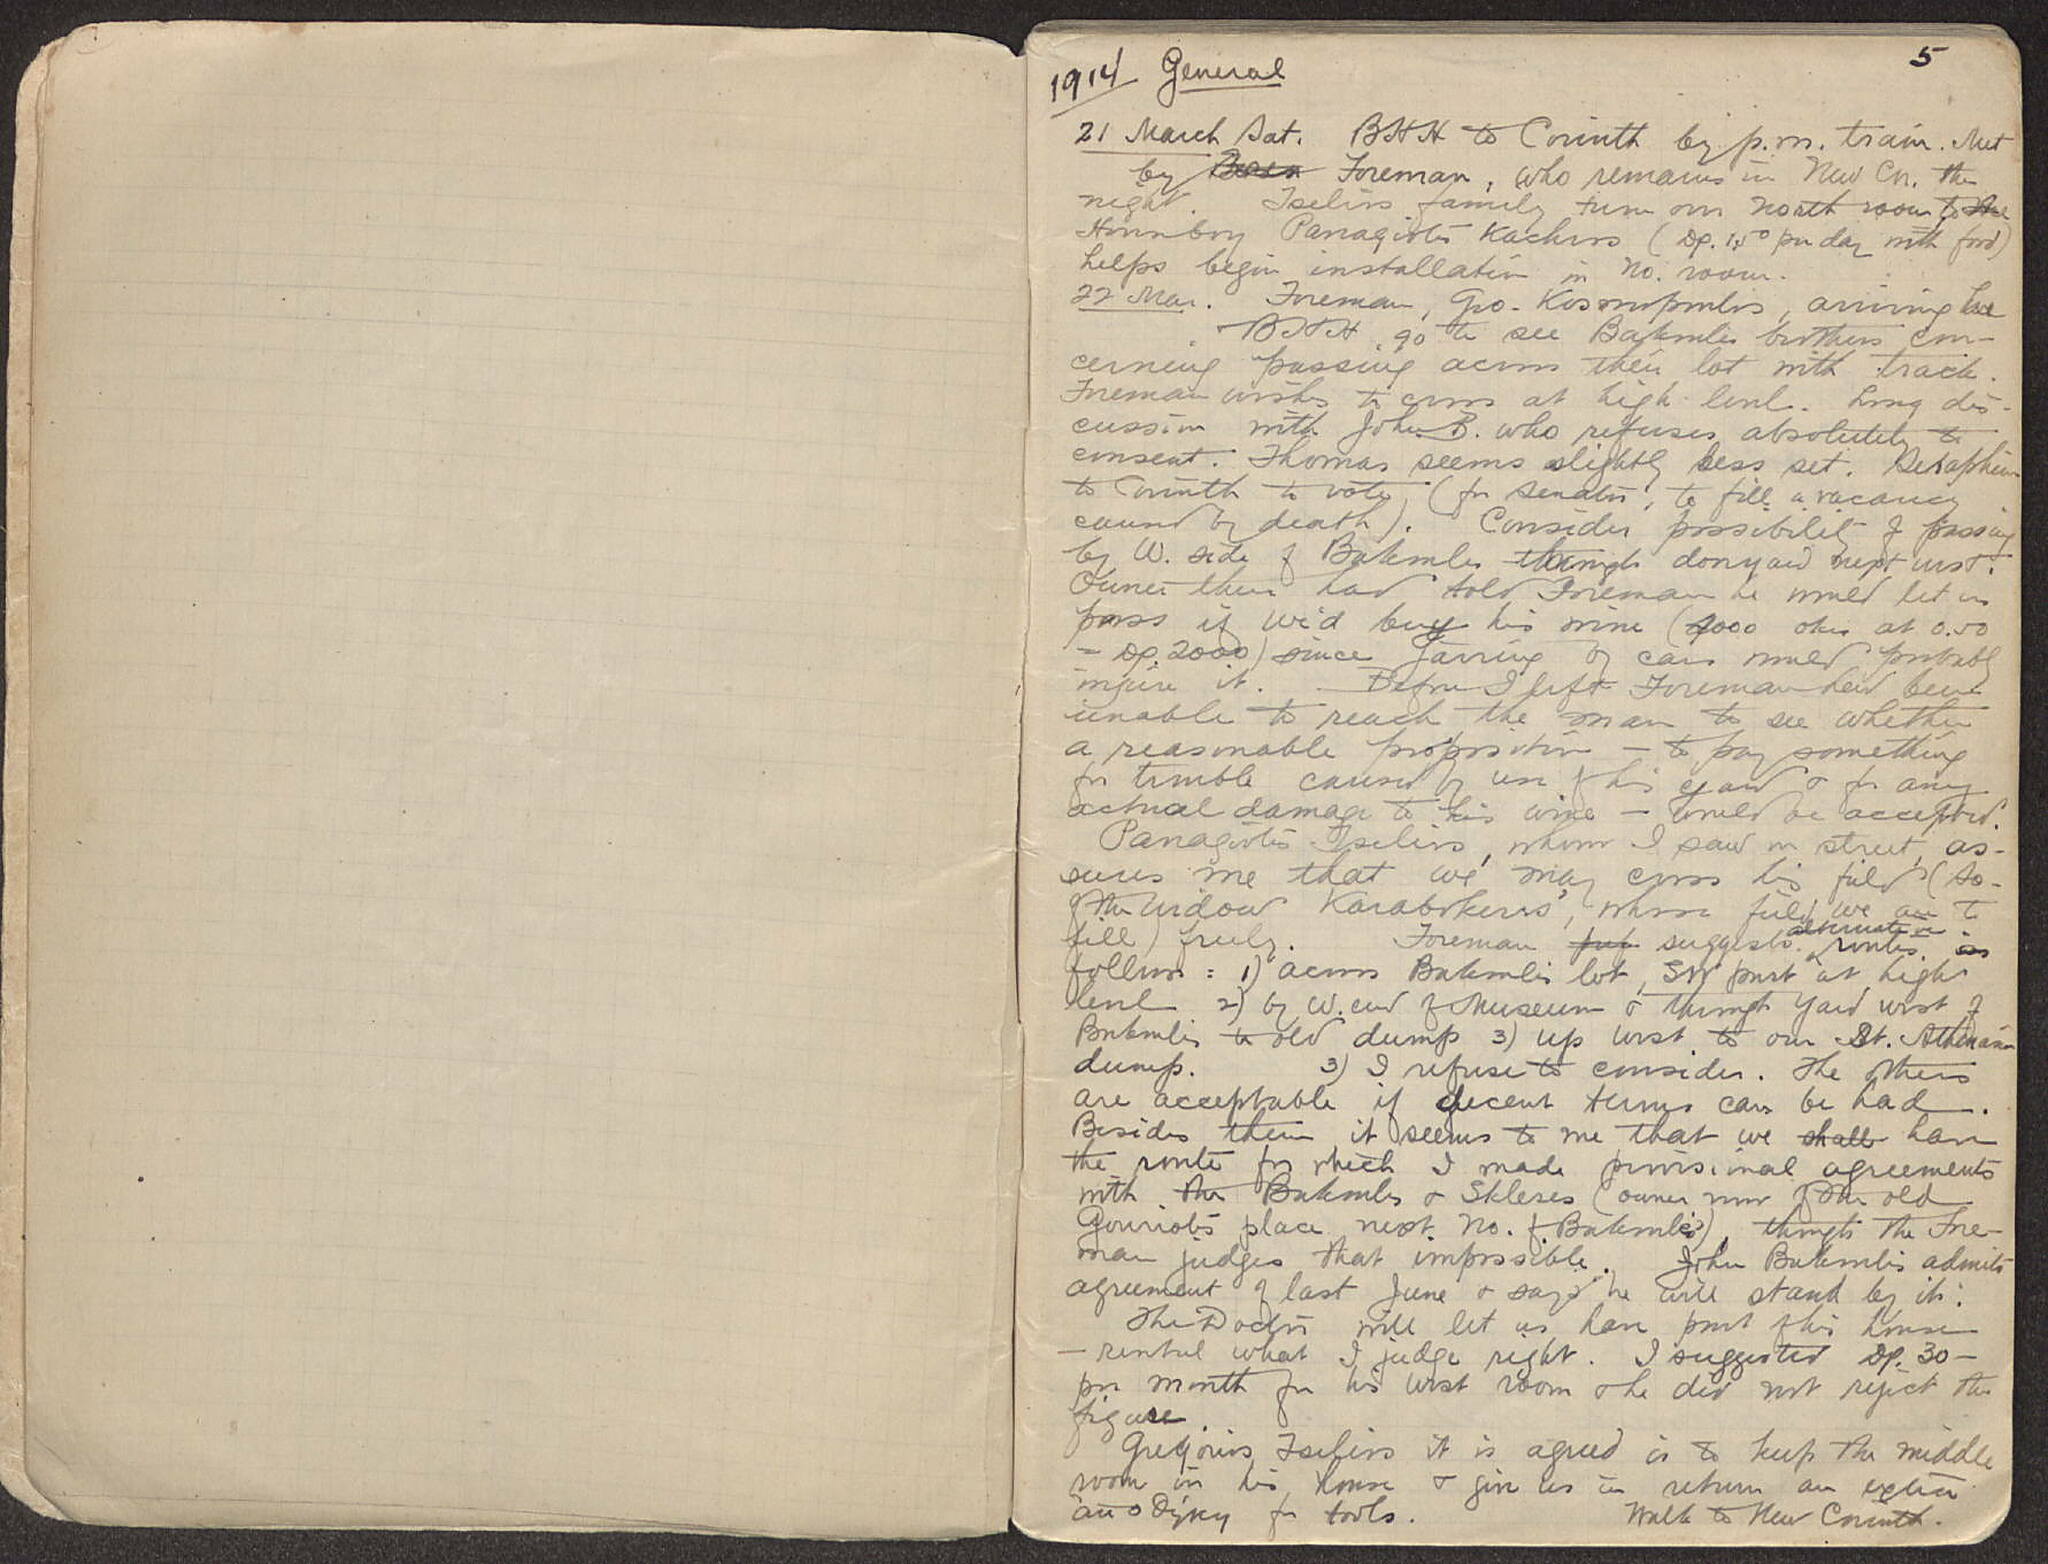 5
1914 General
21 March Sat. BHH to Corinth by p.m. train. Met
by Foreman, who remains in New Cor. the
night. Tselios family turn over north room to
Housboy Panagiotis Kachros (Dr. 1.50 per day with food)
helps begin installation in No. room.
22 Mar. Foreman, Geo. Kosmopoulos, arriving here
BHH go to see Bakoulis brothers con-
cerning passing across their lot with track.
Foreman wishes to cross at high level. Long dis-
cussion with John B. who refuses absolutely to
consent. Thomas seems slightly less set. Seraphim
to Corinth to vote, (for senator, to fill a vacancy
caused by death). Consider possibility of passing
by W. side of Bakoulis through next west.
Owner there had told Foreman he would let us
pass if we'd buy his wine (4000 okes at 0.50
= Dr. 2000) since jarring of cars would probably
injure it. Before I left Foreman had been
unable to reach the man to see whether
a reasonable proposition — to pay something
for trouble caused by use of his yard & for any
actual damage to his wine — would be accepted.
Panagiotis Tselios, whom I saw in street, as-
sures me that we may cross his field (So.
of the widow Karabokeros', whose field we are to
fill) freely. Foreman suggests alternative routes as
follows: 1) across Bakoulis lot, SW part at high
level 2) by W. end of Museum & through yard west of
Bakoulis to old dump 3) up west to our St. Athanasios
dump. 3) I refuse to consider. The others
are acceptable if decent terms can be had.
Besides them it seems to me that we shall have
the route for which I made provisional agreements
with the Bakoulis & Skleres (owner now of the old
Gouriotis place next No. of Bakoulis), though the Fore-
man judges that impossible. John Bakoulis admits
agreement of last June & says he will stand by it.
The Doctor will let us have part of his house
— rental what I judge right. I suggested Dr. 30-
per month for his west room & he did not reject the
figure.
Gregorios Tselios it is agreed is to keep the middle
room in his house & give us in return an extra
for tools. Walk to New Corinth.